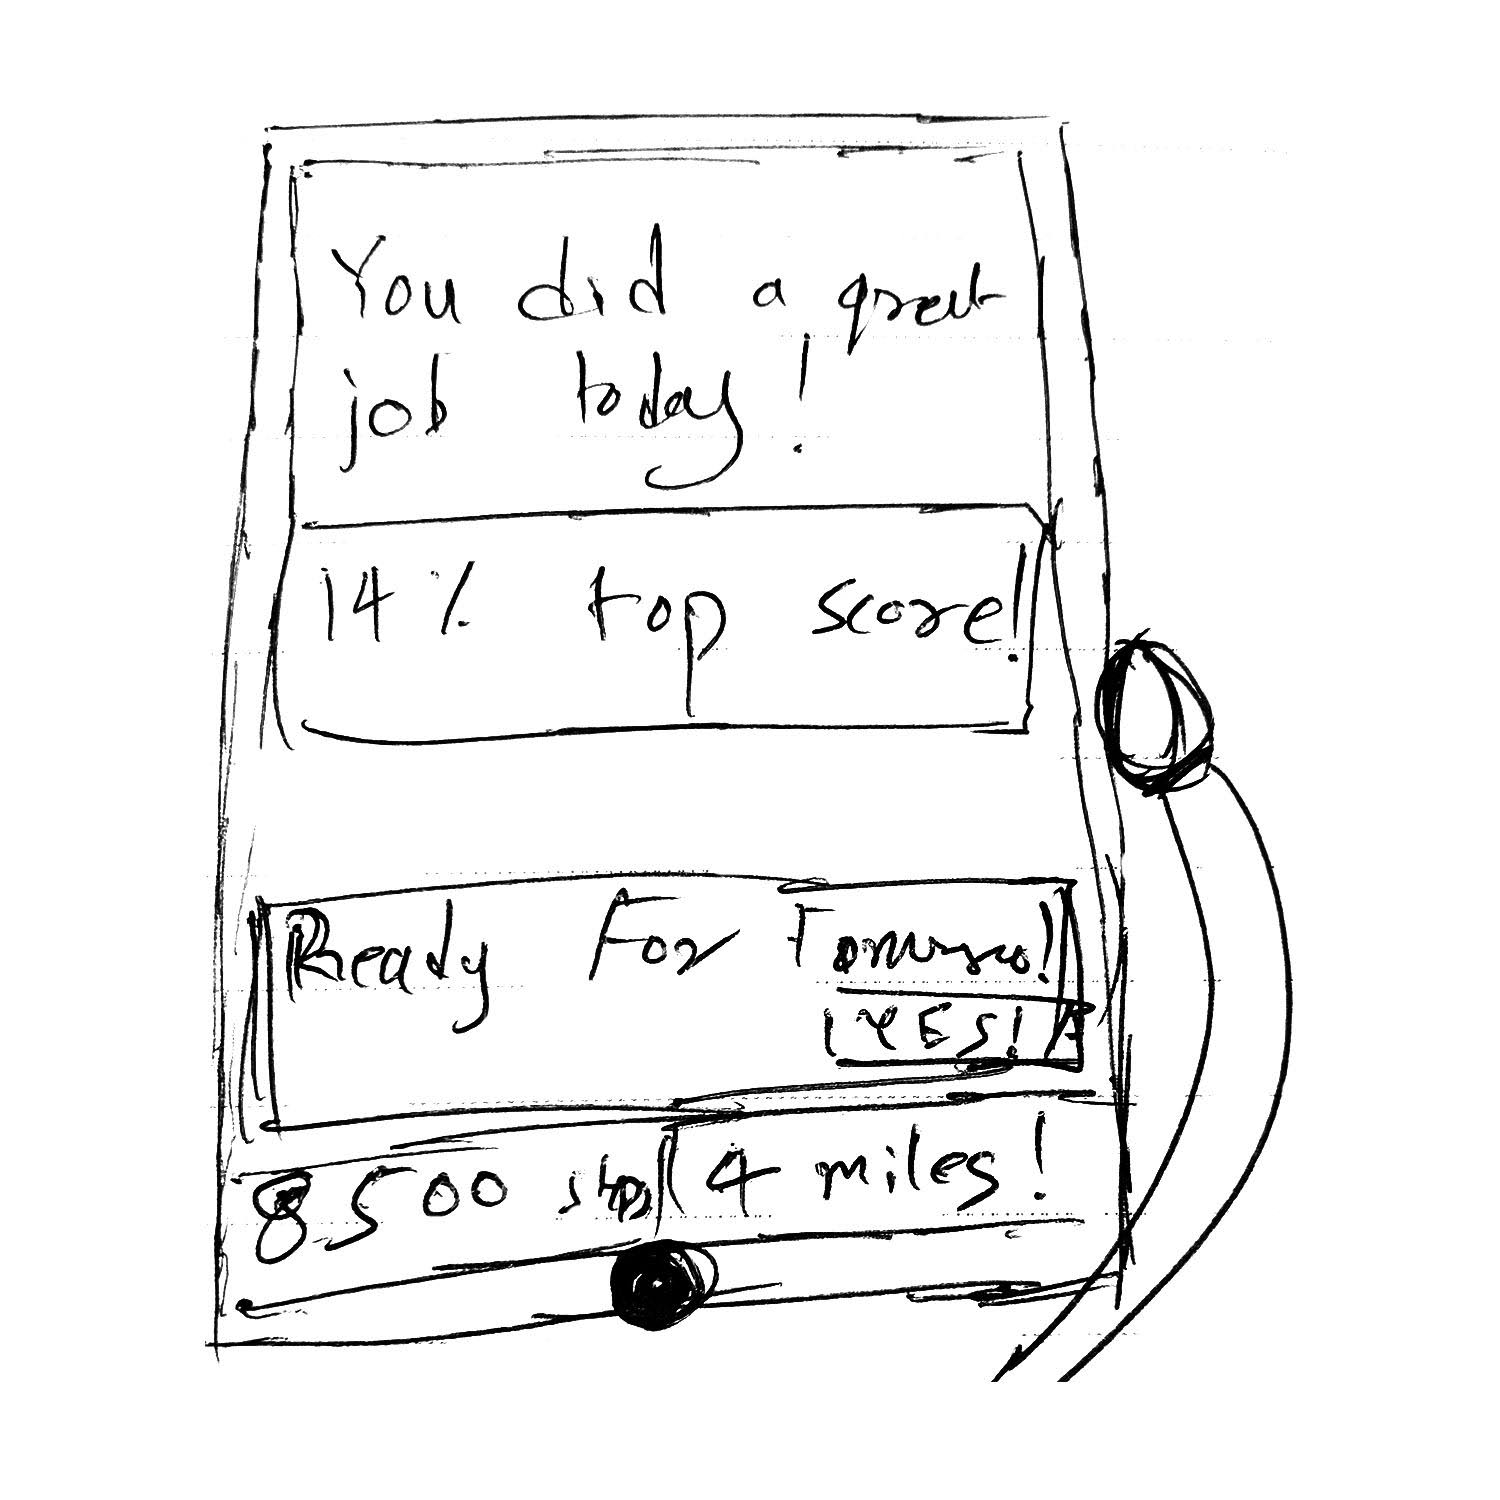 You did a great
job today!
14% top score!
Ready For Tomorrow!
YES!
8500 steps
4 miles!